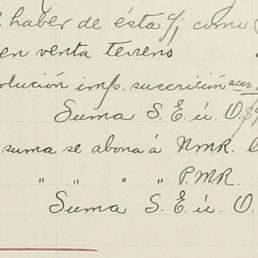 haber de ésta c/ como
en venta terreno
olución imp. suscrición
Suma S. E. ú. O. $
suma se abona á N.M.R.
" " " " P.M.R.
Suma S. E. ú. O.